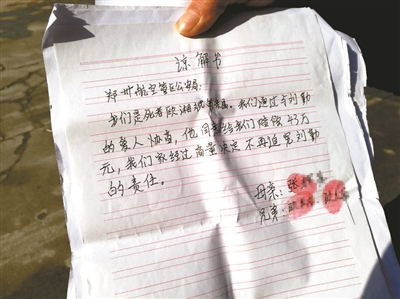 谅解书
郑州航空港区公安局:
我们是死者欧湘斌的亲属。我们通过与刘勤
的家人协商,他同意给我们赔偿43万
元,我们家经过商量决定不再追究刘勤
的责任。
母亲:张
兄弟:欧